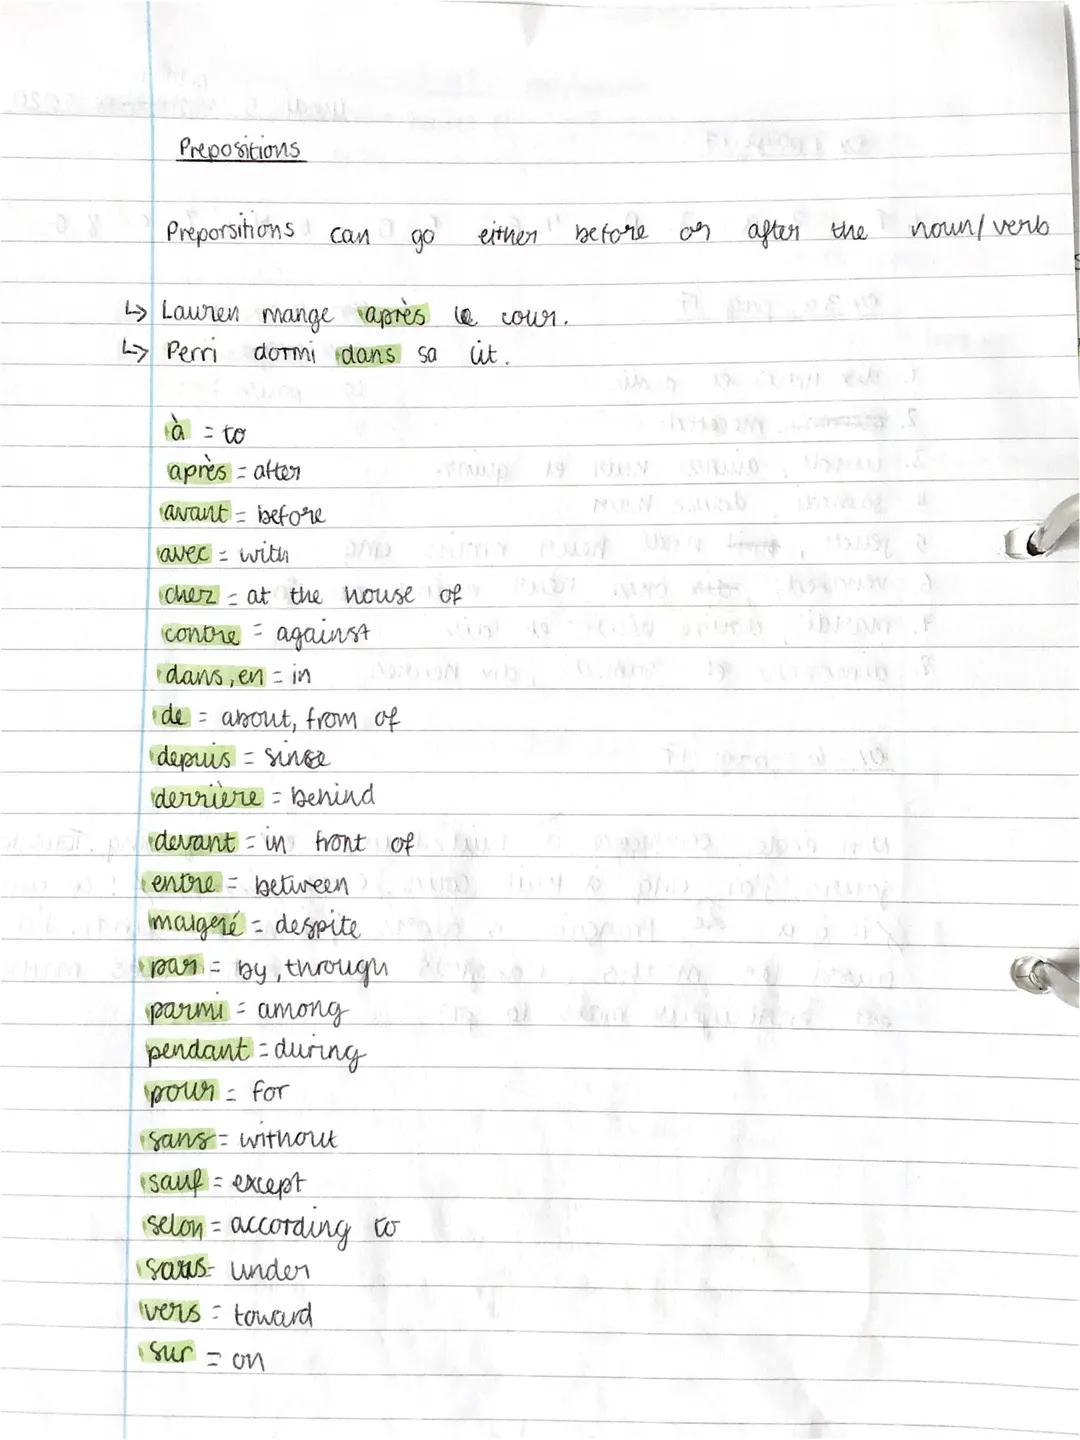 Prepositions
Preporsitions can go either before or after the noun/verb
↳ Lauren mange après le cour.
↳ Perri dormi dans sa lit.
à = to
après = after
avant = before
avec = with
chez = at the house of
contre = against
dans, en = in
de = about, from of
depuis = sinse
derrière = behind
devant = in front of
entre = between
malgeré = despite
par = by, through
parmi = among
pendant = during
pour = for
sans = without
sauf = except
selon = according to
sous = under
vers = toward
sur = on